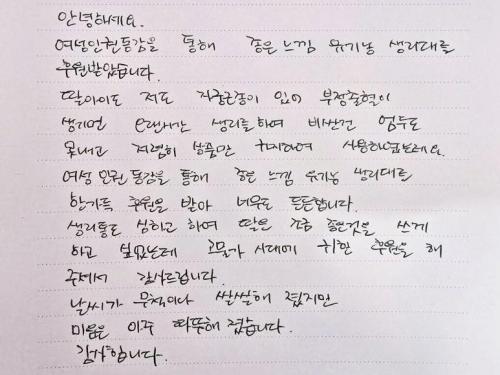 안녕하세요.
여성인권동감을 통해 좋은느낌 유기농 생리대를
후원받았습니다.
딸아이도 저도 자궁근종이 있어 부정출혈이
생기면 오랜시간 생리를하여 비싼건 엄두도
못내고 저렴한 상품만 사용하였는데요.
여성 인권동감을 통해 좋은 느낌 유기농 생리대를
한가득 후원을 받아 너무도 든든합니다.
생리통도 심하고 하여 딸은 조금 좋은것을 쓰게
하고 싶었는데 고물가 시대에 귀한 후원을 해
주셔서 감사드립니다.
날씨가 무척이나 쌀쌀해 졌지만
마음은 아주 따뜻해 졌습니다.
감사합니다.